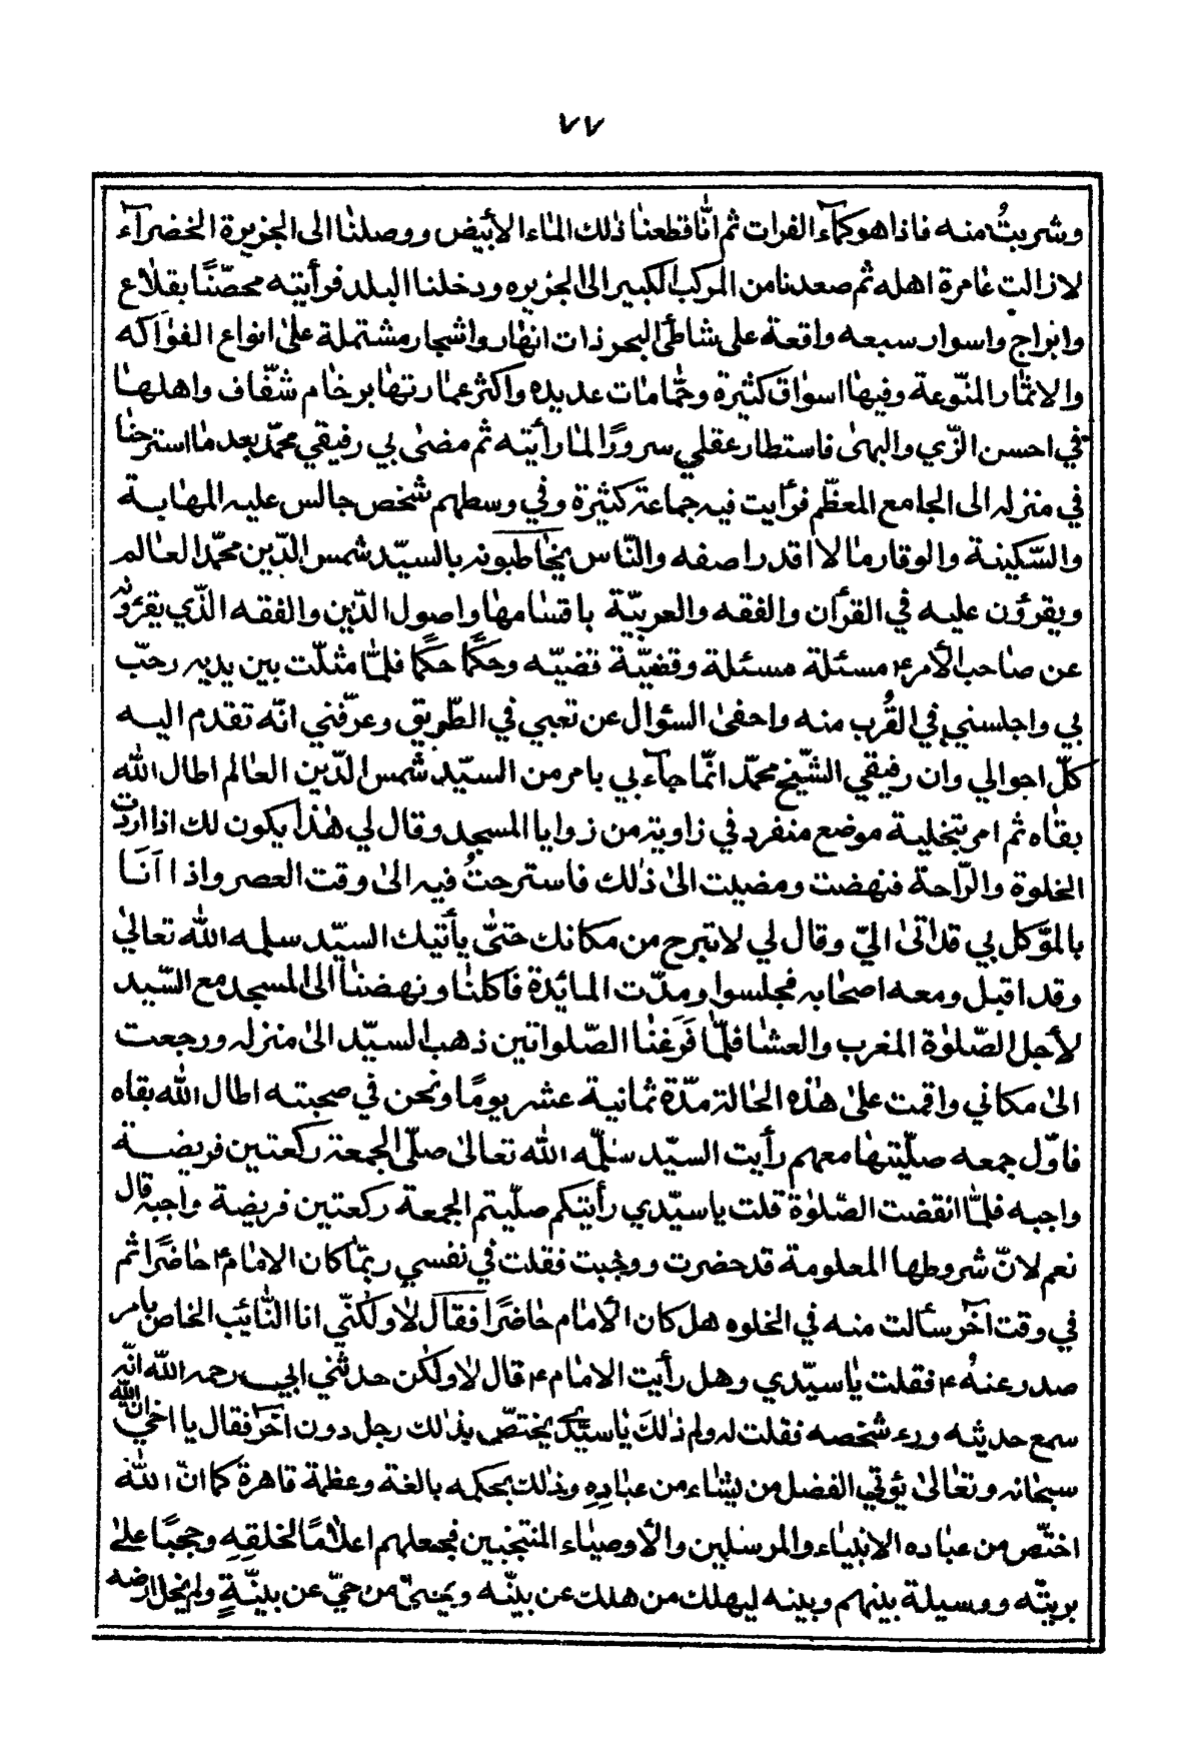 ٧٧
وشربتُ منه فاذا هو كمآء الفرات ثم انّا قطعنا ذلك الماء الأبيض ووصلنا الى الجزيرة الخضرآء
لا زالت عامرة اهله ثم صعدنا من المركب الكبير الى الجزيره ودخلنا البلد فرأيته محصّنًا بقلاع
وابراج واسوار سبعه واقعة على شاطئ البحر ذات انهار واشجار مشتملة على انواع الفواكه
والاثمار المنّوعة وفيها اسواق كثيرة وحمّامات عديده واكثر عمارتها برخام شفّاف واهلها
في احسن الزّي والبهى فاستطار عقلي سرورًا لما رأيته ثم مضى بي رفيقي محمّد بعد ما استرحنا
في منزله الى الجامع المعظّم فرأيت فيه جماعة كثيرة وفي وسطهم شخص جالس عليه المهابة
والسّكينة والوقار ما لا اقدر اصفه والنّاس يخاطبونه بالسيّد شمس الدّين محمّد العالم
ويقرؤن عليه في القرآن والفقه والعربيّة باقسامها واصول الدّين والفقه الذّي يقرؤنه
عن صاحب الأمر ع مسئلة مسئلة وقضيّة قضيّه وحكمًا حكمًا فلمّا مثلّت بين يديه رحّب
بي واجلسني في القُرب منه واحفى السؤال عن تعبي في الطّريق وعرّفني انّه تقدم اليه
كلّ احوالي وان رفيقي الشّيخ محمّد انّما جآء بي بامر من السيّد شمس الدّين العالم اطال الله
بقاه ثم امر بتخلية موضع منفرد في زاوية من زوايا المسجد وقال لي هذا يكون لك اذا اردت
الخلوة والرّاحة فنهضت ومضيت الى ذلك فاسترحتُ فيه الى وقت العصر واذا اَنَا
بالموّكل بي قد اتى اليّ وقال لي لا تبرح من مكانك حتىّ يأتيك السيّد سلمه الله تعالى
وقد اقبل ومعه اصحابه فجلسوا ومدّت المائدة فاكلنا ونهضنا الى المسجد مع السّيد
لأجل الصّلوة المغرب والعشا فلمّا فَرَغنا الصّلواتين ذهب السيّد الى منزله ورجعت
الى مكاني واقمت على هذه الحالة مدّة ثمانية عشر يومًا ونحن في صحبته اطال الله بقاه
فاوّل جمعه صلّيتها معهم رأيت السيّد سلمّه الله تعالى صلّى الجمعة ركعتين فريضة
واجبه فلمّا انقضت الصّلوة قلت يا سيّدي رأيتكم صلّيتم الجمعة ركعتين فريضة واجبة قال
نعم لانّ شروطها المعلومة قد حضرت ووجبت فقلت في نفسي ربمّا كان الامام ع حاضرًا ثم
في وقت آخر سألت منه في الخلوه هل كان الأمام حاضرًا فقال لا ولكنّي انا النّائب الخاص بامر
صدر عنهُ ع فقلت يا سيّدي وهل رأيت الامام ع قال لا ولكن حدثني ابي رحمه الله انّه
سمع حديثه ورء شخصه فقلت له ولم ذلكَ يا سيّدي يختصّ بذلك رجل دون آخر فقال يا اخي انّ الله
سبحانه وتعالى يؤتي الفضل من يشاء من عبادِهِ وذلك بحكمه بالغة وعظمة قاهرة كما انّ الله
اختّص من عباده الانبياء والمرسلين والأوصياء المنتجبين فجعلهم اعلامًا لخلقِهِ وحججًا على
بريّته ووسيلة بينهم وبينه ليهلك من هلك عن بيّنه ويحيىّ من حيّ عن بيّنةٍ ولم يخل ارضه